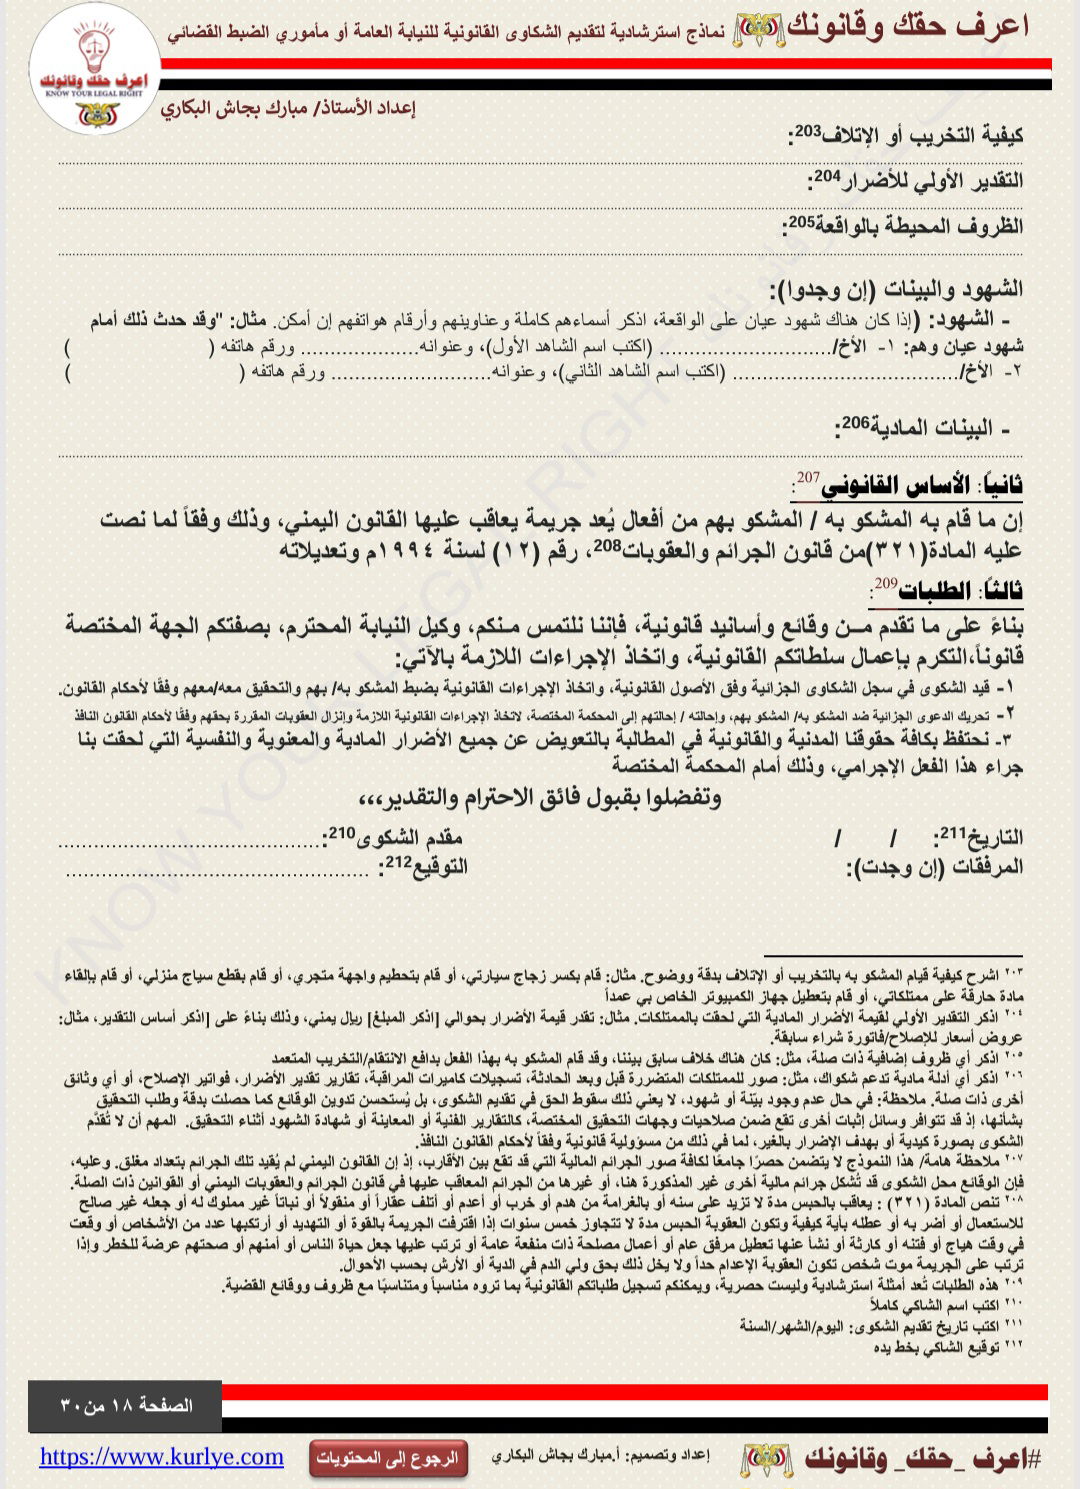 اعرف حقك وقانونك نماذج استرشادية لتقديم الشكاوى القانونية للنيابة العامة أو مأموري الضبط القضائي
اعرف حقك وقانونك
KNOW YOUR LEGAL RIGHT
إعداد الأستاذ/ مبارك بجاش البكاري
كيفية التخريب أو الإتلاف203:
التقدير الأولي للأضرار204:
الظروف المحيطة بالواقعة205:
الشهود والبينات (إن وجدوا):
- الشهود: (إذا كان هناك شهود عيان على الواقعة، اذكر أسماءهم كاملة وعناوينهم وأرقام هواتفهم إن أمكن. مثال: "وقد حدث ذلك أمام
شهود عيان وهم: ١- الأخ/............................. (اكتب اسم الشاهد الأول)، وعنوانه.................... ورقم هاتفه ( )
٢- الأخ/...................................... (اكتب اسم الشاهد الثاني)، وعنوانه........................... ورقم هاتفه ( )
- البينات المادية206:
ثانياً: الأساس القانوني207:
إن ما قام به المشكو به / المشكو بهم من أفعال يُعد جريمة يعاقب عليها القانون اليمني، وذلك وفقاً لما نصت
عليه المادة(٣٢١)من قانون الجرائم والعقوبات208، رقم (١٢) لسنة ١٩٩٤م وتعديلاته
ثالثًا: الطلبات209:
بناءً على ما تقدم مــن وقائع وأسانيد قانونية، فإننا نلتمس مـنكم، وكيل النيابة المحترم، بصفتكم الجهة المختصة
قانوناً،التكرم بإعمال سلطاتكم القانونية، واتخاذ الإجراءات اللازمة بالآتي:
١- قيد الشكوى في سجل الشكاوى الجزائية وفق الأصول القانونية، واتخاذ الإجراءات القانونية بضبط المشكو به/ بهم والتحقيق معه/معهم وفقًا لأحكام القانون.
٢- تحريك الدعوى الجزائية ضد المشكو به/ المشكو بهم، وإحالته / إحالتهم إلى المحكمة المختصة، لاتخاذ الإجراءات القانونية اللازمة وإنزال العقوبات المقررة بحقهم وفقًا لأحكام القانون النافذ
٣- نحتفظ بكافة حقوقنا المدنية والقانونية في المطالبة بالتعويض عن جميع الأضرار المادية والمعنوية والنفسية التي لحقت بنا
جراء هذا الفعل الإجرامي، وذلك أمام المحكمة المختصة
وتفضلوا بقبول فائق الاحترام والتقدير،،،
التاريخ211: / / مقدم الشكوى210:............................................
المرفقات (إن وجدت): التوقيع212: ..................................................
٢٠٣ اشرح كيفية قيام المشكو به بالتخريب أو الإتلاف بدقة ووضوح. مثال: قام بكسر زجاج سيارتي، أو قام بتحطيم واجهة متجري، أو قام بقطع سياج منزلي، أو قام بإلقاء
مادة حارقة على ممتلكاتي، أو قام بتعطيل جهاز الكمبيوتر الخاص بي عمداً
٢٠٤ اذكر التقدير الأولي لقيمة الأضرار المادية التي لحقت بالممتلكات. مثال: تقدر قيمة الأضرار بحوالي [اذكر المبلغ] ريال يمني، وذلك بناءً على [اذكر أساس التقدير، مثال:
عروض أسعار للإصلاح/فاتورة شراء سابقة.
٢٠٥ اذكر أي ظروف إضافية ذات صلة، مثل: كان هناك خلاف سابق بيننا، وقد قام المشكو به بهذا الفعل بدافع الانتقام/التخريب المتعمد
٢٠٦ اذكر أي أدلة مادية تدعم شكواك، مثل: صور للممتلكات المتضررة قبل وبعد الحادثة، تسجيلات كاميرات المراقبة، تقارير تقدير الأضرار، فواتير الإصلاح، أو أي وثائق
أخرى ذات صلة. ملاحظة: في حال عدم وجود بيّنة أو شهود، لا يعني ذلك سقوط الحق في تقديم الشكوى، بل يُستحسن تدوين الوقائع كما حصلت بدقة وطلب التحقيق
بشأنها، إذ قد تتوافر وسائل إثبات أخرى تقع ضمن صلاحيات وجهات التحقيق المختصة، كالتقارير الفنية أو المعاينة أو شهادة الشهود أثناء التحقيق. المهم أن لا تُقدَّم
الشكوى بصورة كيدية أو بهدف الإضرار بالغير، لما في ذلك من مسؤولية قانونية وفقاً لأحكام القانون النافذ.
٢٠٧ ملاحظة هامة/ هذا النموذج لا يتضمن حصرًا جامعًا لكافة صور الجرائم المالية التي قد تقع بين الأقارب، إذ إن القانون اليمني لم يُقيد تلك الجرائم بتعداد مغلق. وعليه،
فإن الوقائع محل الشكوى قد تُشكل جرائم مالية أخرى غير المذكورة هنا، أو غيرها من الجرائم المعاقب عليها في قانون الجرائم والعقوبات اليمني أو القوانين ذات الصلة.
٢٠٨ تنص المادة (٣٢١) : يعاقب بالحبس مدة لا تزيد على سنه أو بالغرامة من هدم أو خرب أو أعدم أو أتلف عقاراً أو منقولاً أو نباتاً غير مملوك له أو جعله غير صالح
للاستعمال أو أضر به أو عطله بأية كيفية وتكون العقوبة الحبس مدة لا تتجاوز خمس سنوات إذا اقترفت الجريمة بالقوة أو التهديد أو أرتكبها عدد من الأشخاص أو وقعت
في وقت هياج أو فتنه أو كارثة أو نشأ عنها تعطيل مرفق عام أو أعمال مصلحة ذات منفعة عامة أو ترتب عليها جعل حياة الناس أو أمنهم أو صحتهم عرضة للخطر وإذا
ترتب على الجريمة موت شخص تكون العقوبة الإعدام حداً ولا يخل ذلك بحق ولي الدم في الدية أو الأرش بحسب الأحوال.
٢٠٩ هذه الطلبات تُعد أمثلة استرشادية وليست حصرية، ويمكنكم تسجيل طلباتكم القانونية بما تروه مناسباً ومتناسبًا مع ظروف ووقائع القضية.
٢١٠ اكتب اسم الشاكي كاملاً
٢١١ اكتب تاريخ تقديم الشكوى: اليوم/الشهر/السنة
٢١٢ توقيع الشاكي بخط يده
الصفحة ١٨ من ٣٠
#اعرف _حقك_ وقانونك إعداد وتصميم: أ.مبارك بجاش البكاري الرجوع إلى المحتويات https://www.kurlye.com